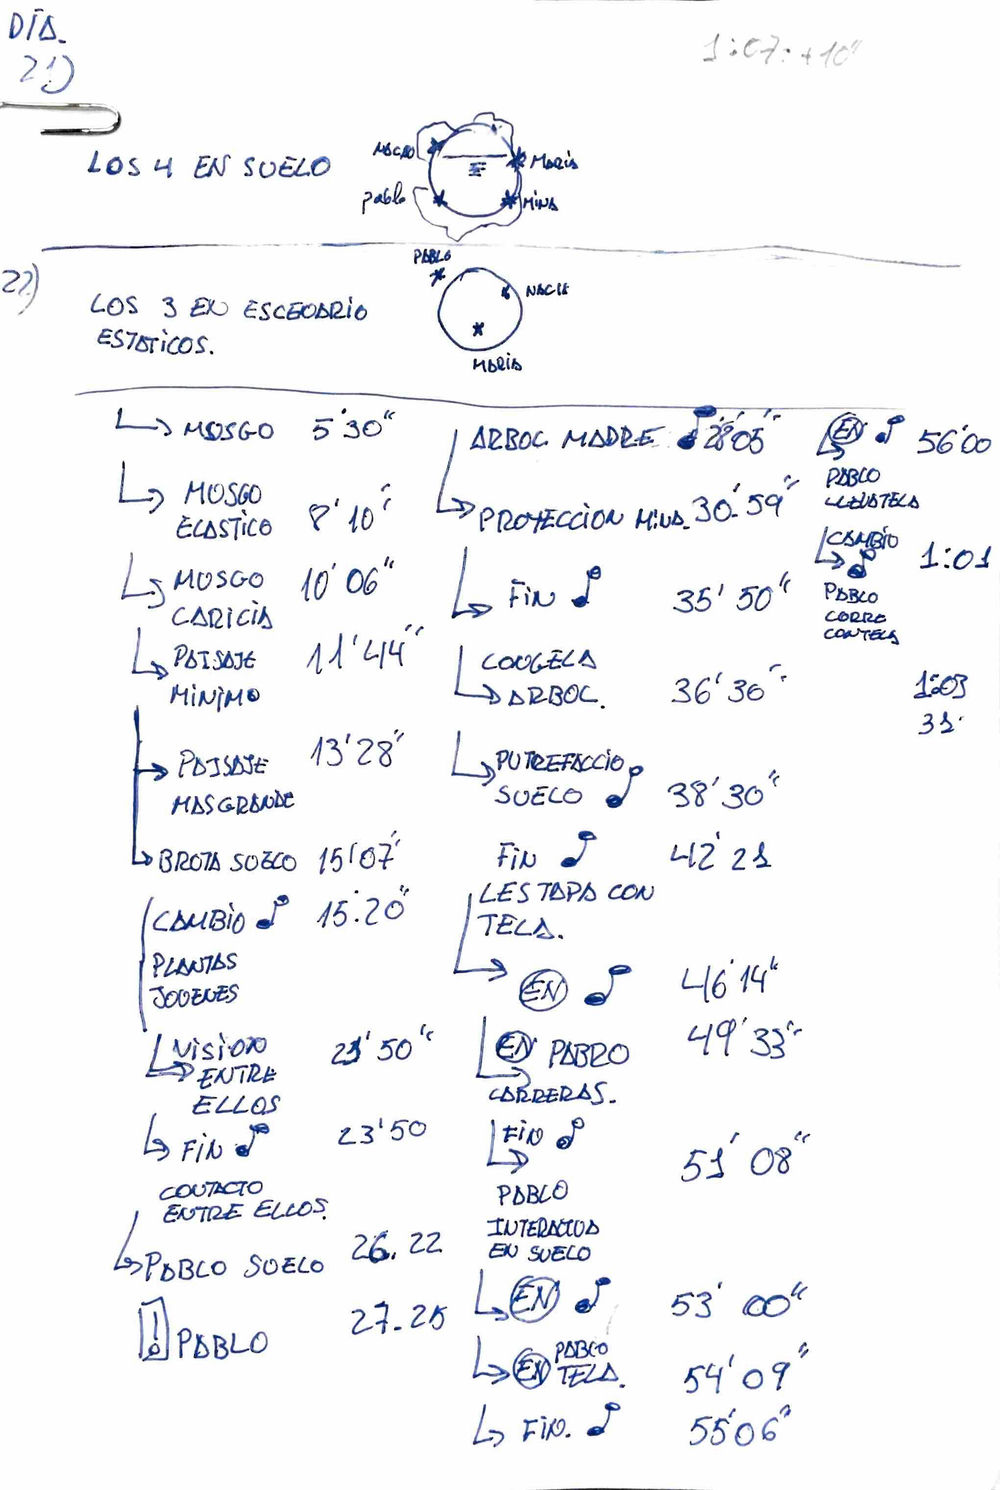 DÍA.
21)
1:07:+10"
LOS 4 EN SUELO
NACHO
MARIA
pablo
MINA
22)
PABLO
LOS 3 EN ESCENARIO
ESTATICOS.
MARIA
MUSGO 5'30"
MUSGO
ELASTICO 8'10"
MUSGO
CARICIA 10'06"
PAISAJE
MINIMO 11'44"
PAISAJE
MAS GRANDE 13'28"
BROTA SUELO 15'07"
CAMBIO ♪ 15.20"
PLANTAS
JOVENES
VISION
ENTRE
ELLOS 21'50"
FIN ♪ 23'50
CONTACTO
ENTRE ELLOS.
PABLO SUELO 26.22
! PABLO 27.25
ARBOL MADRE ♪ 28'05"
PROYECCION MINA. 30'59"
FIN ♪ 35'50"
CONGELA
ARBOL. 36'30"
PUTREFACCIO
SUELO ♪ 38'30"
FIN ♪ 42'21
LES TAPA CON
TELA.
EN ♪ 46'14"
EN PABRO 49'33"
CARRERAS.
FIN ♪ 51'08"
PABLO
INTERACTUA
EN SUELO
EN ♪ 53'00"
EN PABLO
TELA. 54'09"
FIN. ♪ 55'06"
EN ♪ 56'00
PABLO
LLEVA TELA
CAMBIO
♪ 1:01
PABLO
CORRE
CON TELA
1:03
31.